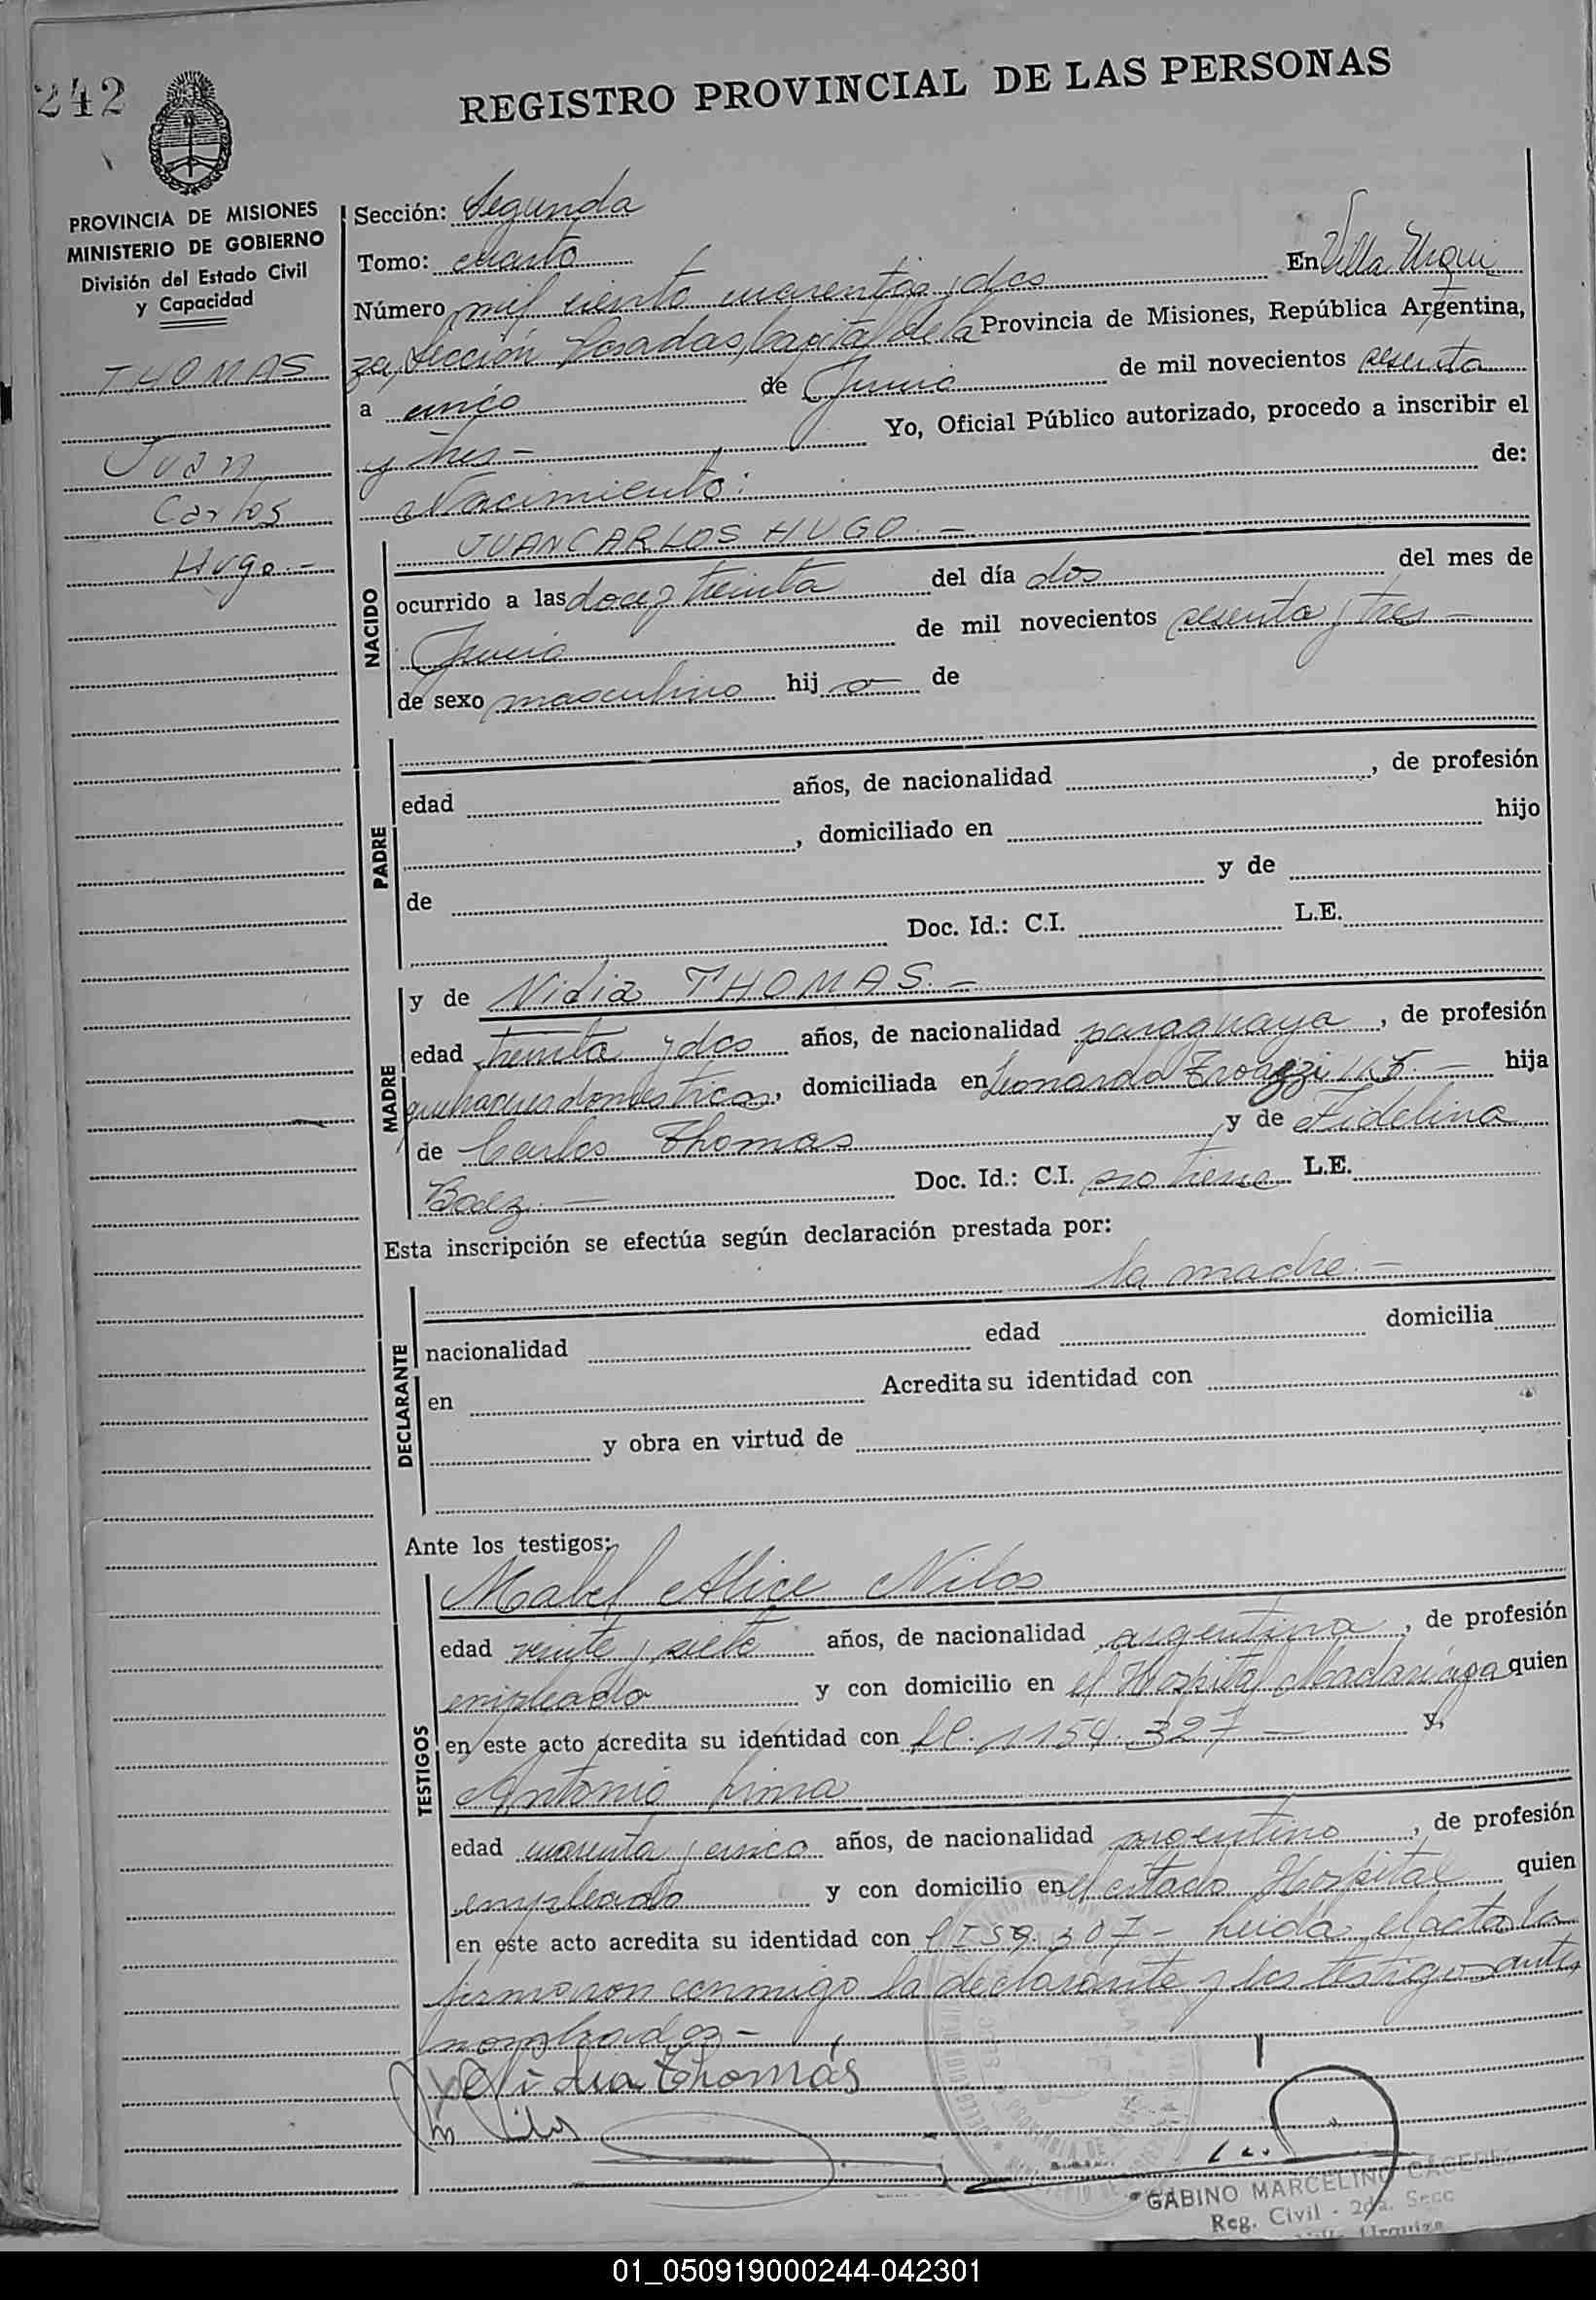 242
REGISTRO PROVINCIAL DE LAS PERSONAS
PROVINCIA DE MISIONES
MINISTERIO DE GOBIERNO
División del Estado Civil
y Capacidad
THOMAS
Juan
Carlos
Hugo.-
Sección: Segunda
Tomo: cuarto
Número mil ciento cuarenta y dos En Villa Urqui
za, Sección Posadas, Capital de la Provincia de Misiones, República Argentina,
a cinco de Junio de mil novecientos sesenta
y tres - Yo, Oficial Público autorizado, procedo a inscribir el
Nacimiento: de:
JUAN CARLOS HUGO.-
NACIDO
ocurrido a las doce y treinta del día dos del mes de
Junio de mil novecientos sesenta y tres -
de sexo masculino hij o de
PADRE
edad años, de nacionalidad , de profesión
, domiciliado en hijo
de y de
Doc. Id.: C.I. L.E.
MADRE
y de Nidia THOMAS.-
edad treinta y dos años, de nacionalidad paraguaya, de profesión
quehaceres domesticos, domiciliada en Leonardo hija
de Carlos Thomas y de Fidelina
Baez - Doc. Id.: C.I. no tiene L.E.
Esta inscripción se efectúa según declaración prestada por:
la madre.-
DECLARANTE
nacionalidad edad domicilia
en Acredita su identidad con
y obra en virtud de
Ante los testigos:
TESTIGOS
Mabel Alice Nilos
edad veinte y siete años, de nacionalidad argentina, de profesión
empleado y con domicilio en el Hospital Madariaga quien
en este acto acredita su identidad con 1154.327 - y,
Antonio Lima
edad cuarenta y cinco años, de nacionalidad argentino, de profesión
empleado y con domicilio en el citado Hospital quien
en este acto acredita su identidad con 159.307 - leida el acta la
firmaron conmigo la declarante y los testigos antes
nombrados -
Nidia Thomás
GABINO MARCELINO CACERES
Reg. Civil - 2da. Secc
Villa Urquiza
01_050919000244-042301